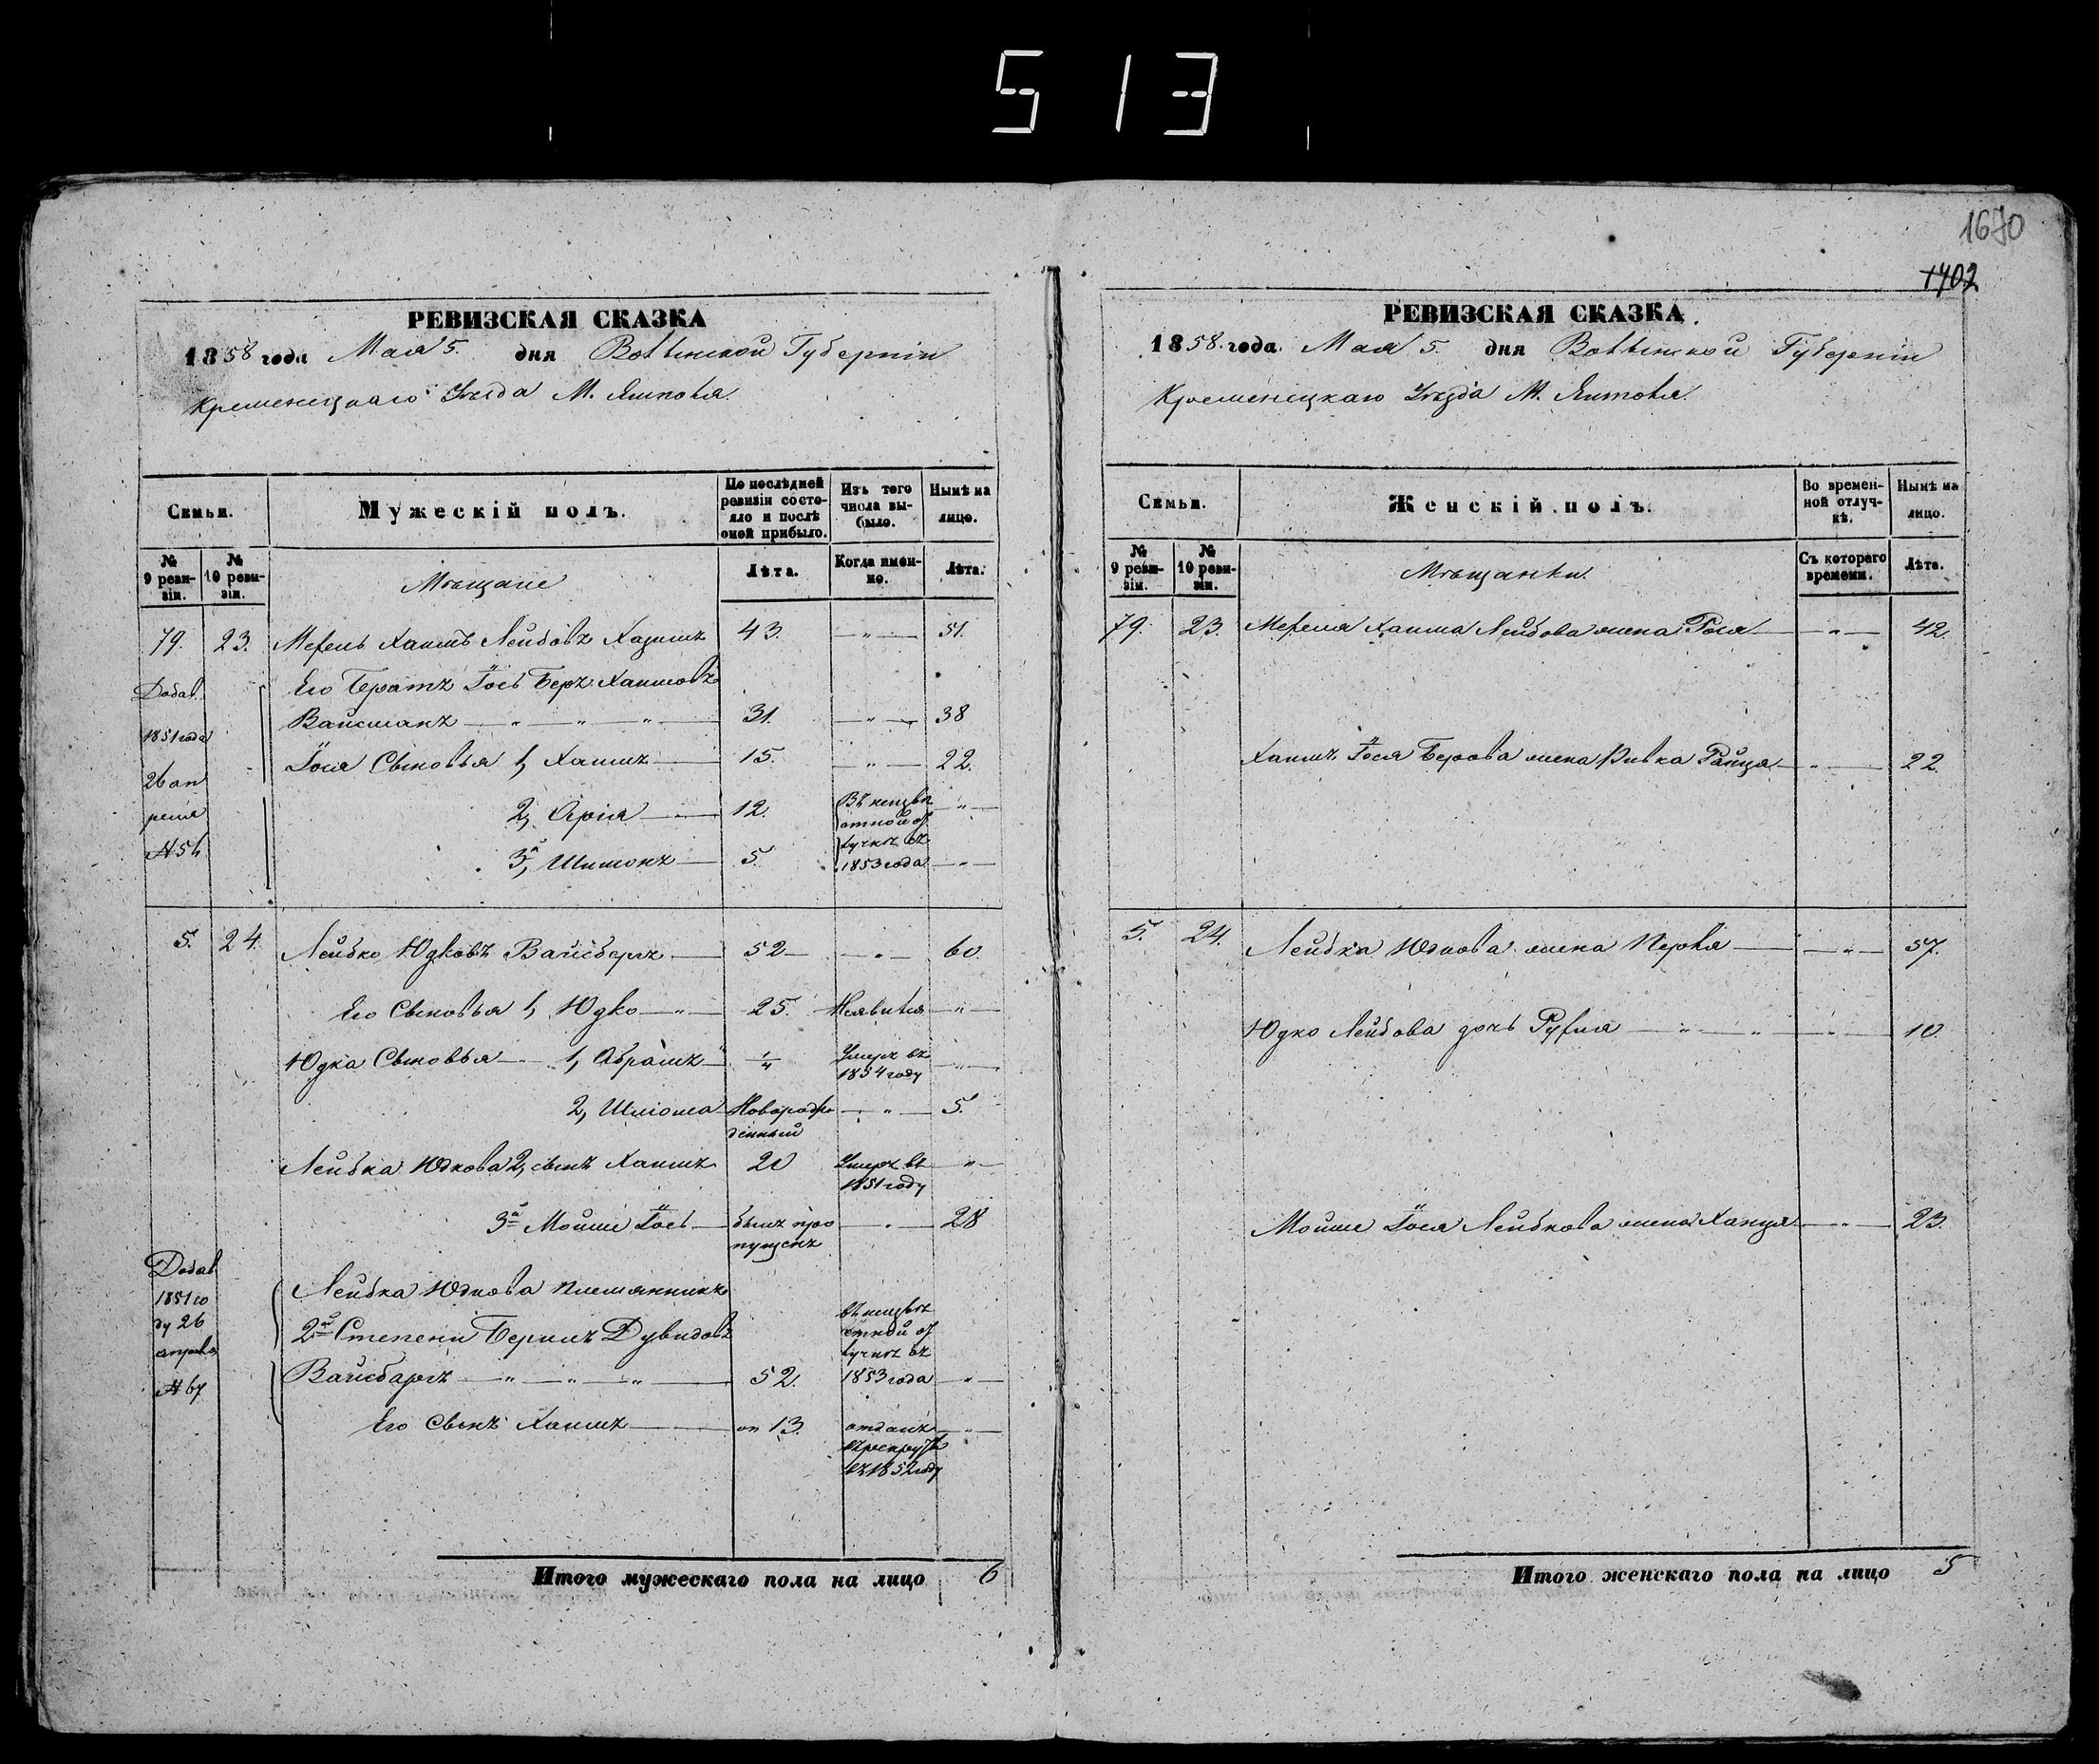 513
1670
1702
РЕВИЗСКАЯ СКАЗКА
1858 года Мая 5. дня Волынской Губерніи
Кременецкаго Уѣзда М. Ямполя.
Семьи.
Мужескій полъ.
По послѣдней ревизіи состояло и послѣ оной прибыло.
Изъ того числа выбыло.
Нынѣ на лицо.
№ 9 ревизіи.
№ 10 ревизіи.
Мѣщане
Лѣта.
Когда именно.
Лѣта.
79. 23. Мерель Хаимъ Лейбовъ 43. — " — 51.
Добав. Его Братъ Іось Беръ Хаимовъ
1851 года Вайсманъ — " — " — " — 31. — " — 38
Іося Сыновья 1, Хаимъ — 15. — " — 22.
26 апреля 2, Арія — 12. Въ неизвѣстной отлучкѣ съ 1853 года — " —
№ 54 3й, Шимонъ — 5. — " —
5. 24. Лейбко Юдковъ Вайсбергъ — 52 — — " — 60.
Его Сыновья 1, Юдко — " — 25. Неявился — " —
Юдка Сыновья — " 1, Абрамъ — 1/4 Умеръ въ 1854 году — " —
2, Шліома Новорожденный — " — 5.
Лейбка Юдкова 2, сынъ Хаимъ 20 Умеръ въ 1851 году — " —
3й Мошко Іось — былъ пропущенъ — " — 28
Добав. Лейбка Юдкова племянникъ
1851 году 26 апреля 2й Степени Берилъ Дувидовъ
№ 67 Вайсбаргъ — " — " — " — 52. въ неизвѣстной отлучкѣ съ 1853 года — " —
Его Сынъ Хаимъ — 13. отданъ въ рекруты въ 1852 году — " —
Итого мужескаго пола на лицо 6
РЕВИЗСКАЯ СКАЗКА.
1858. года. Мая 5. дня Волынской Губерніи
Кременецкаго Уѣзда М. Ямполя.
Семьи.
Женскій полъ.
Во временной отлучкѣ.
Нынѣ на лицо.
№ 9 ревизіи.
№ 10 ревизіи.
Мѣщанки.
Съ котораго времени.
Лѣта.
79. 23. Мереля Хаима Лейбова жена Рося — " — 42.
Хаимъ Іося Берова жена Ривка — " — 22
5. 24. Лейбка Юдкова жена Перля — " — 57.
Юдко Лейбова дочь Руфля — " — " — " — 10.
Мошко Іося Лейбкова жена Ханця — " — 23.
Итого женскаго пола на лицо 5